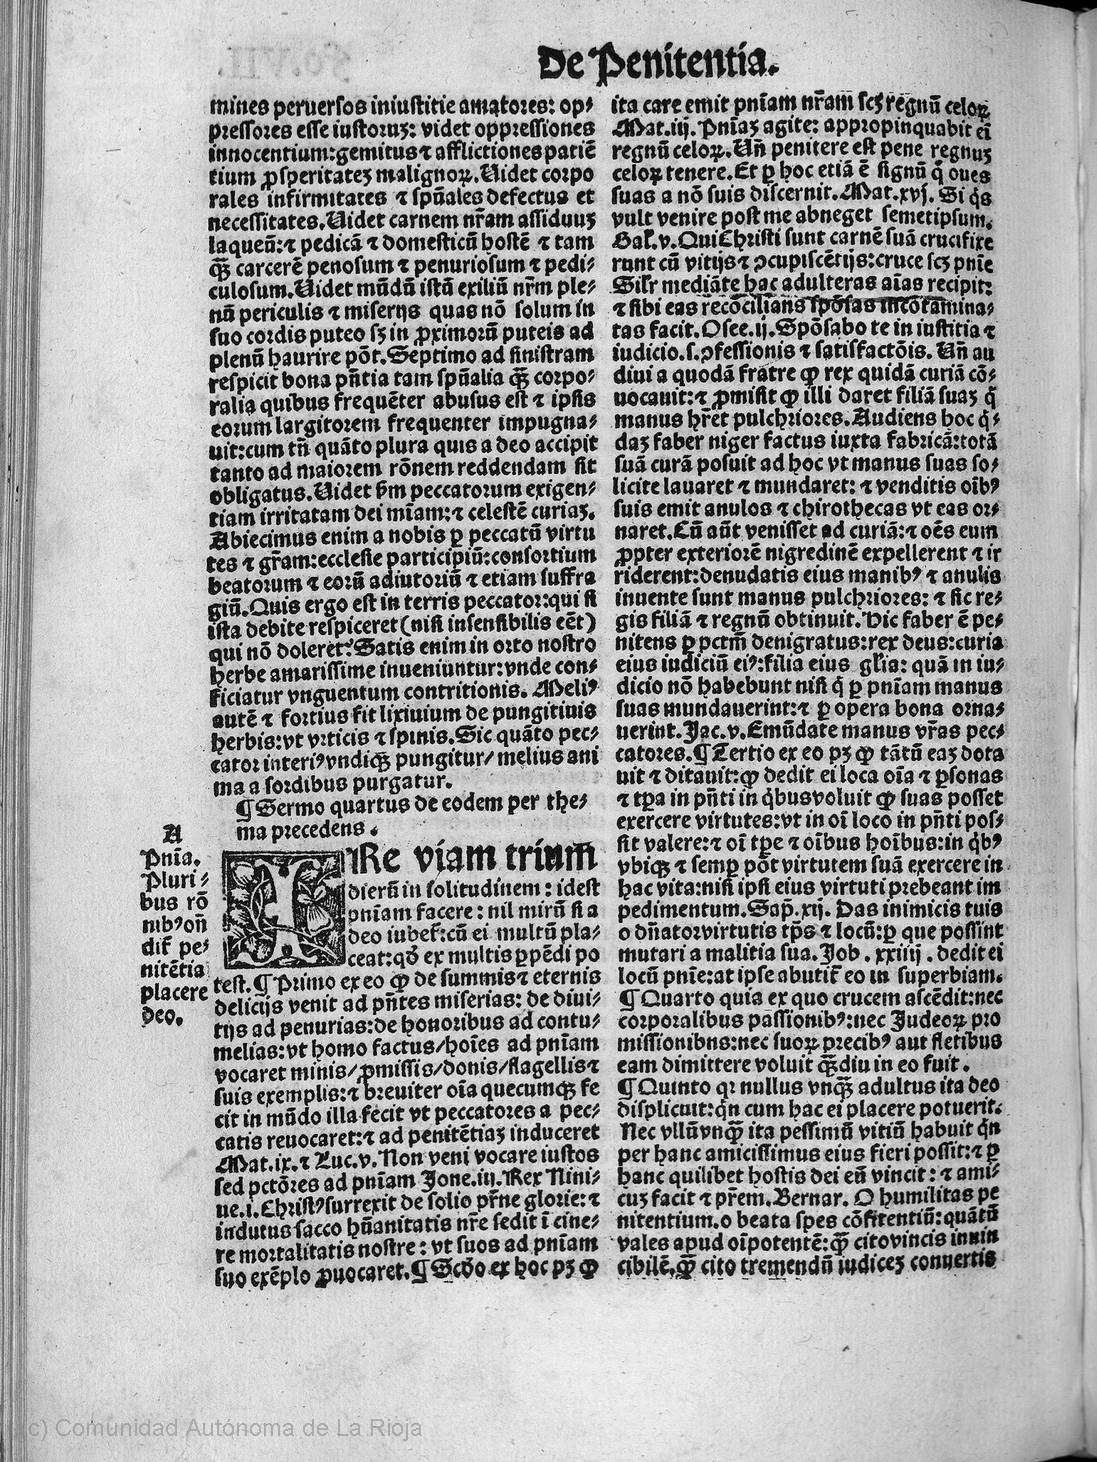 De Penitentia.
mines peruersos iniustitie amatores: op⸗
pressores esse iustoruʒ: videt oppressiones
innocentium:gemitus ⁊ afflictiones patiē
tium ꝓsperitateʒ malignoꝝ. Uidet corpo
rales infirmitates ⁊ spūales defectus et
necessitates. Uidet carnem nr̄am assiduuʒ
laqueū:⁊ pedicā ⁊ domesticū hostē ⁊ tam
qȝ̄ carcerē penosum ⁊ penuriosum ⁊ pedi⸗
culosum. Uidet mūdū istū exiliū nr̄m ple⸗
nū periculis ⁊ miserijs quas nō solum in
suo cordis puteo sʒ in ꝓximorū puteis ad
plenū haurire pōt. Septimo ad sinistram
respicit bona pn̄tia tam spūalia qȝ̄ corpo⸗
ralia quibus frequēter abusus est ⁊ ipsis
eorum largitorem frequenter impugna⸗
uit:cum tn̄ quāto plura quis a deo accipit
tanto ad maiorem rōnem reddendam sit
obligatus. Uidet ẜm peccatorum exigen⸗
tiam irritatam dei mīam:⁊ celestē curiaʒ.
Abiecimus enim a nobis ꝑ peccatū virtu
tes ⁊ gr̄am:ecclesie participiū:consortium
beatorum ⁊ eorū adiutoriū ⁊ etiam suffra
giū. Quis ergo est in terris peccator:qui si
ista debite respiceret (nisi insensibilis eēt)
qui nō doleret? Satis enim in orto nostro
herbe amarissime inueniuntur:vnde con⸗
ficiatur vnguentum contritionis. Meliꝰ
autē ⁊ fortius fit lixiuium de pungitiuis
herbis:vt vrticis ⁊ spinis. Sic quāto pec⸗
cator interiꝰ vndiqȝ pungitur/ melius ani
ma a sordibus purgatur.
¶ Sermo quartus de eodem per the⸗
ma precedens.
A
Pnīa.
Pluri⸗
bus rō
nibꝰ on̄
dit̄ pe⸗
nitētia
placere
deo.
IRe viam trium
dierū in solitudinem: idest
pnīam facere: nil mirū si a
deo iubet̄:cū ei multū pla⸗
ceat:qđ ex multis ꝑpēdi po
test. ¶ Primo ex eo ꝙ de summis ⁊ eternis
delicijs venit ad pn̄tes miserias: de diui⸗
tijs ad penurias:de honoribus ad contu⸗
melias:vt homo factus/hoīes ad pnīam
vocaret minis/ꝓmissis/donis/flagellis ⁊
suis exemplis:⁊ breuiter oīa quecumqȝ fe
cit in mūdo illa fecit vt peccatores a pec⸗
catis reuocaret:⁊ ad penitētiaʒ induceret
Mat.ix.⁊ Luc.v. Non veni vocare iustos
sed pctōres ad pnīam Jone.iij. Rex Nini⸗
ue.i. Christꝰ surrexit de solio pr̄ne glorie:⁊
indutus sacco hūanitatis nr̄e sedit ī cine⸗
re mortalitatis nostre: vt suos ad pnīam
suo exēplo ꝓuocaret. ¶ Scđo ex hoc pʒ ꝙ
ita care emit pnīam nr̄am scʒ regnū celoꝝ
Mat.iij. Pnīaʒ agite: appropinquabit eī
regnū celoꝝ. Un̄ penitere est pene regnuʒ
celoꝝ tenere. Et ꝑ hoc etiā ē signū q̄ oues
suas a nō suis discernit. Mat.xvj. Si q̇s
vult venire post me abneget semetipsum.
Gal̄.v. Qui Christi sunt carnē suā crucifixe
runt cū vitijs ⁊ ↄcupiscētijs:cruce scʒ pnīe
Sil̄r mediāte hac adulteras aīas recipit:
⁊ sibi eas recōcilians spōsas incōtamina⸗
tas facit. Osee.ij. Spōsabo te in iustitia ⁊
iudicio.s.ↄfessionis ⁊ satisfactōis. Un̄ au
diui a quodā fratre ꝙ rex quidā curiā cō⸗
uocauit:⁊ ꝓmisit ꝙ illi daret filiā suaʒ q̄
manus hr̄et pulchriores. Audiens hoc q̇⸗
daʒ faber niger factus iuxta fabricā:totā
suā curā posuit ad hoc vt manus suas so⸗
licite lauaret ⁊ mundaret: ⁊ venditis oībꝰ
suis emit anulos ⁊ chirothecas vt eas or⸗
naret. Cū aūt venisset ad curiā:⁊ oēs eum
ꝓpter exteriorē nigredinē expellerent ⁊ ir
riderent:denudatis eius manibꝰ ⁊ anulis
inuente sunt manus pulchriores: ⁊ sic re⸗
gis filiā ⁊ regnū obtinuit. Hic faber ē pe⸗
nitens ꝑ pctm̄ denigratus:rex deus:curia
eius iudiciū eiꝰ:filia eius gl̄ia: quā in iu⸗
dicio nō habebunt nisi q̇ ꝑ pnīam manus
suas mundauerint:⁊ ꝑ opera bona orna⸗
uerint. Jac.v. Emūdate manus vr̄as pec⸗
catores. ¶ Tertio ex eo pʒ ꝙ tātū eaʒ dota
uit ⁊ ditauit:ꝙ dedit ei loca oīa ⁊ ꝑsonas
⁊ tꝑa in pn̄ti in q̇bus voluit ꝙ suas posset
exercere virtutes:vt in oī loco in pn̄ti pos⸗
sit valere:⁊ oī tꝑe ⁊ oībus hoībus:in q̇bꝰ
vbiqȝ ⁊ semꝑ pōt virtutem suā exercere in
hac vita:nisi ipsi eius virtuti prebeant im
pedimentum. Sap̄.xij. Das inimicis tuis
o dn̄ator virtutis tp̄s ⁊ locū:ꝑ que possint
mutari a malitia sua. Job.xxiiij. dedit ei
locū pnīe:at ipse abutit̄ eo in superbiam.
¶ Quarto quia ex quo crucem ascēdit:nec
corporalibus passionibꝰ:nec Judeoꝝ pro
missionibns:nec suoꝝ precibꝰ aut fletibus
eam dimittere voluit qȝ̄diu in eo fuit.
¶ Quinto qꝛ nullus vnqȝ̄ adultus ita deo
displicuit:qn̄ cum hac ei placere potuerit.
Nec vllū vnqȝ̄ ita pessimū vitiū habuit qn̄
per hanc amicissimus eius fieri possit:⁊ ꝑ
hanc quilibet hostis dei eū vincit: ⁊ ami⸗
cuʒ facit ⁊ pr̄em. Bernar. O humilitas pe
nitentium.o beata spes cōfitentiū:quātū
vales apud oīpotentē:qȝ̄ cito vincis inuin
cibilē,qȝ̄ cito tremendū iudiceʒ conuertis
(c) Comunidad Autónoma de La Rioja